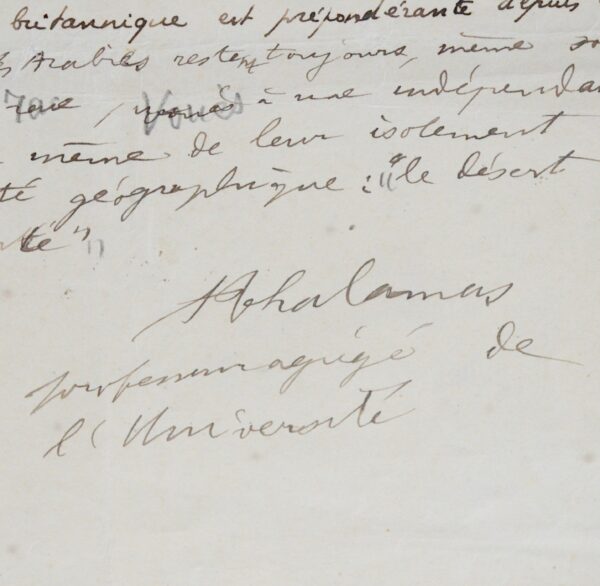 britannique est prépondérante depuis
Arabies restent toujours, même
voués à une indépendan
même de leur isolement
té géographique : "le désert
té"
Thalamas
professeur agrégé de
l'Université